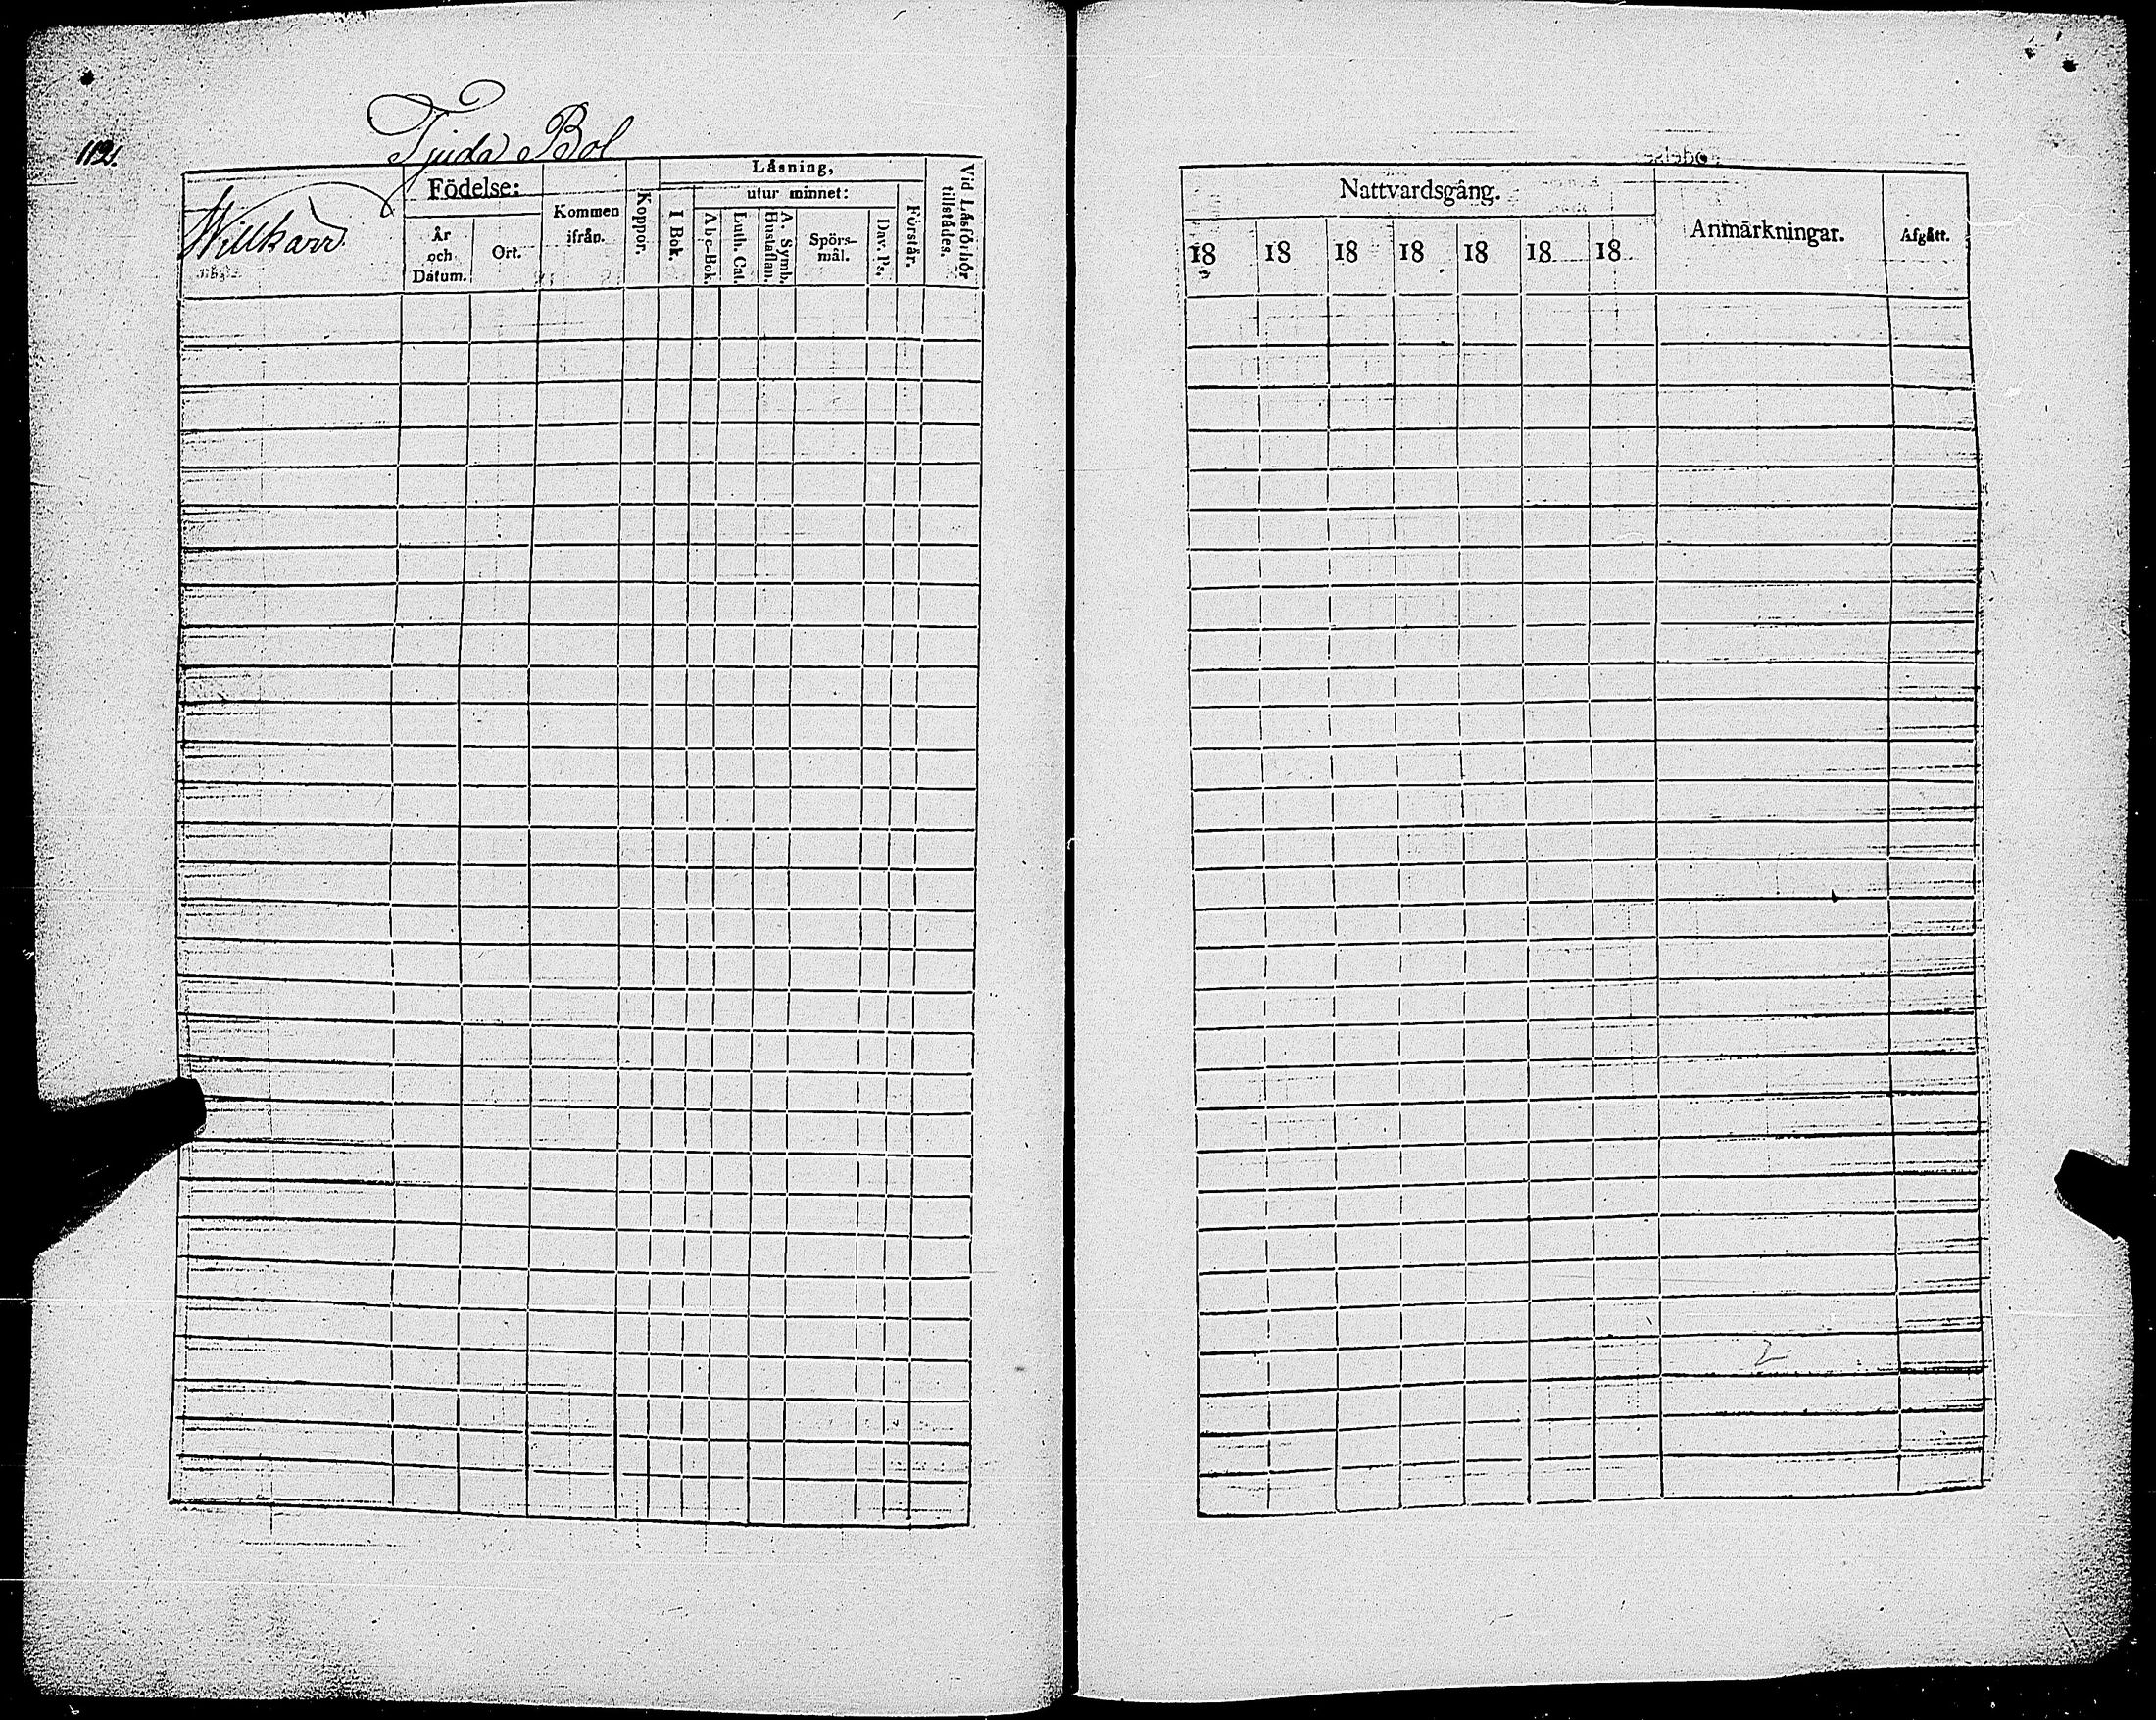 112.
Tjuda Bol
Willkärr
Födelse:
År och Datum.
Ort.
Kommen ifrån.
Koppor.
Läsning,
I Bok.
utur minnet:
Abc-Bok.
Luth. Cat.
A. Symb. Hustaflan.
Spörs-
mål.
Dav. Ps.
Förstår.
Vid Läsförhör tillstådes.
Nattvardsgång.
18 18 18 18 18 18 18
Anmärkningar.
Afgått.